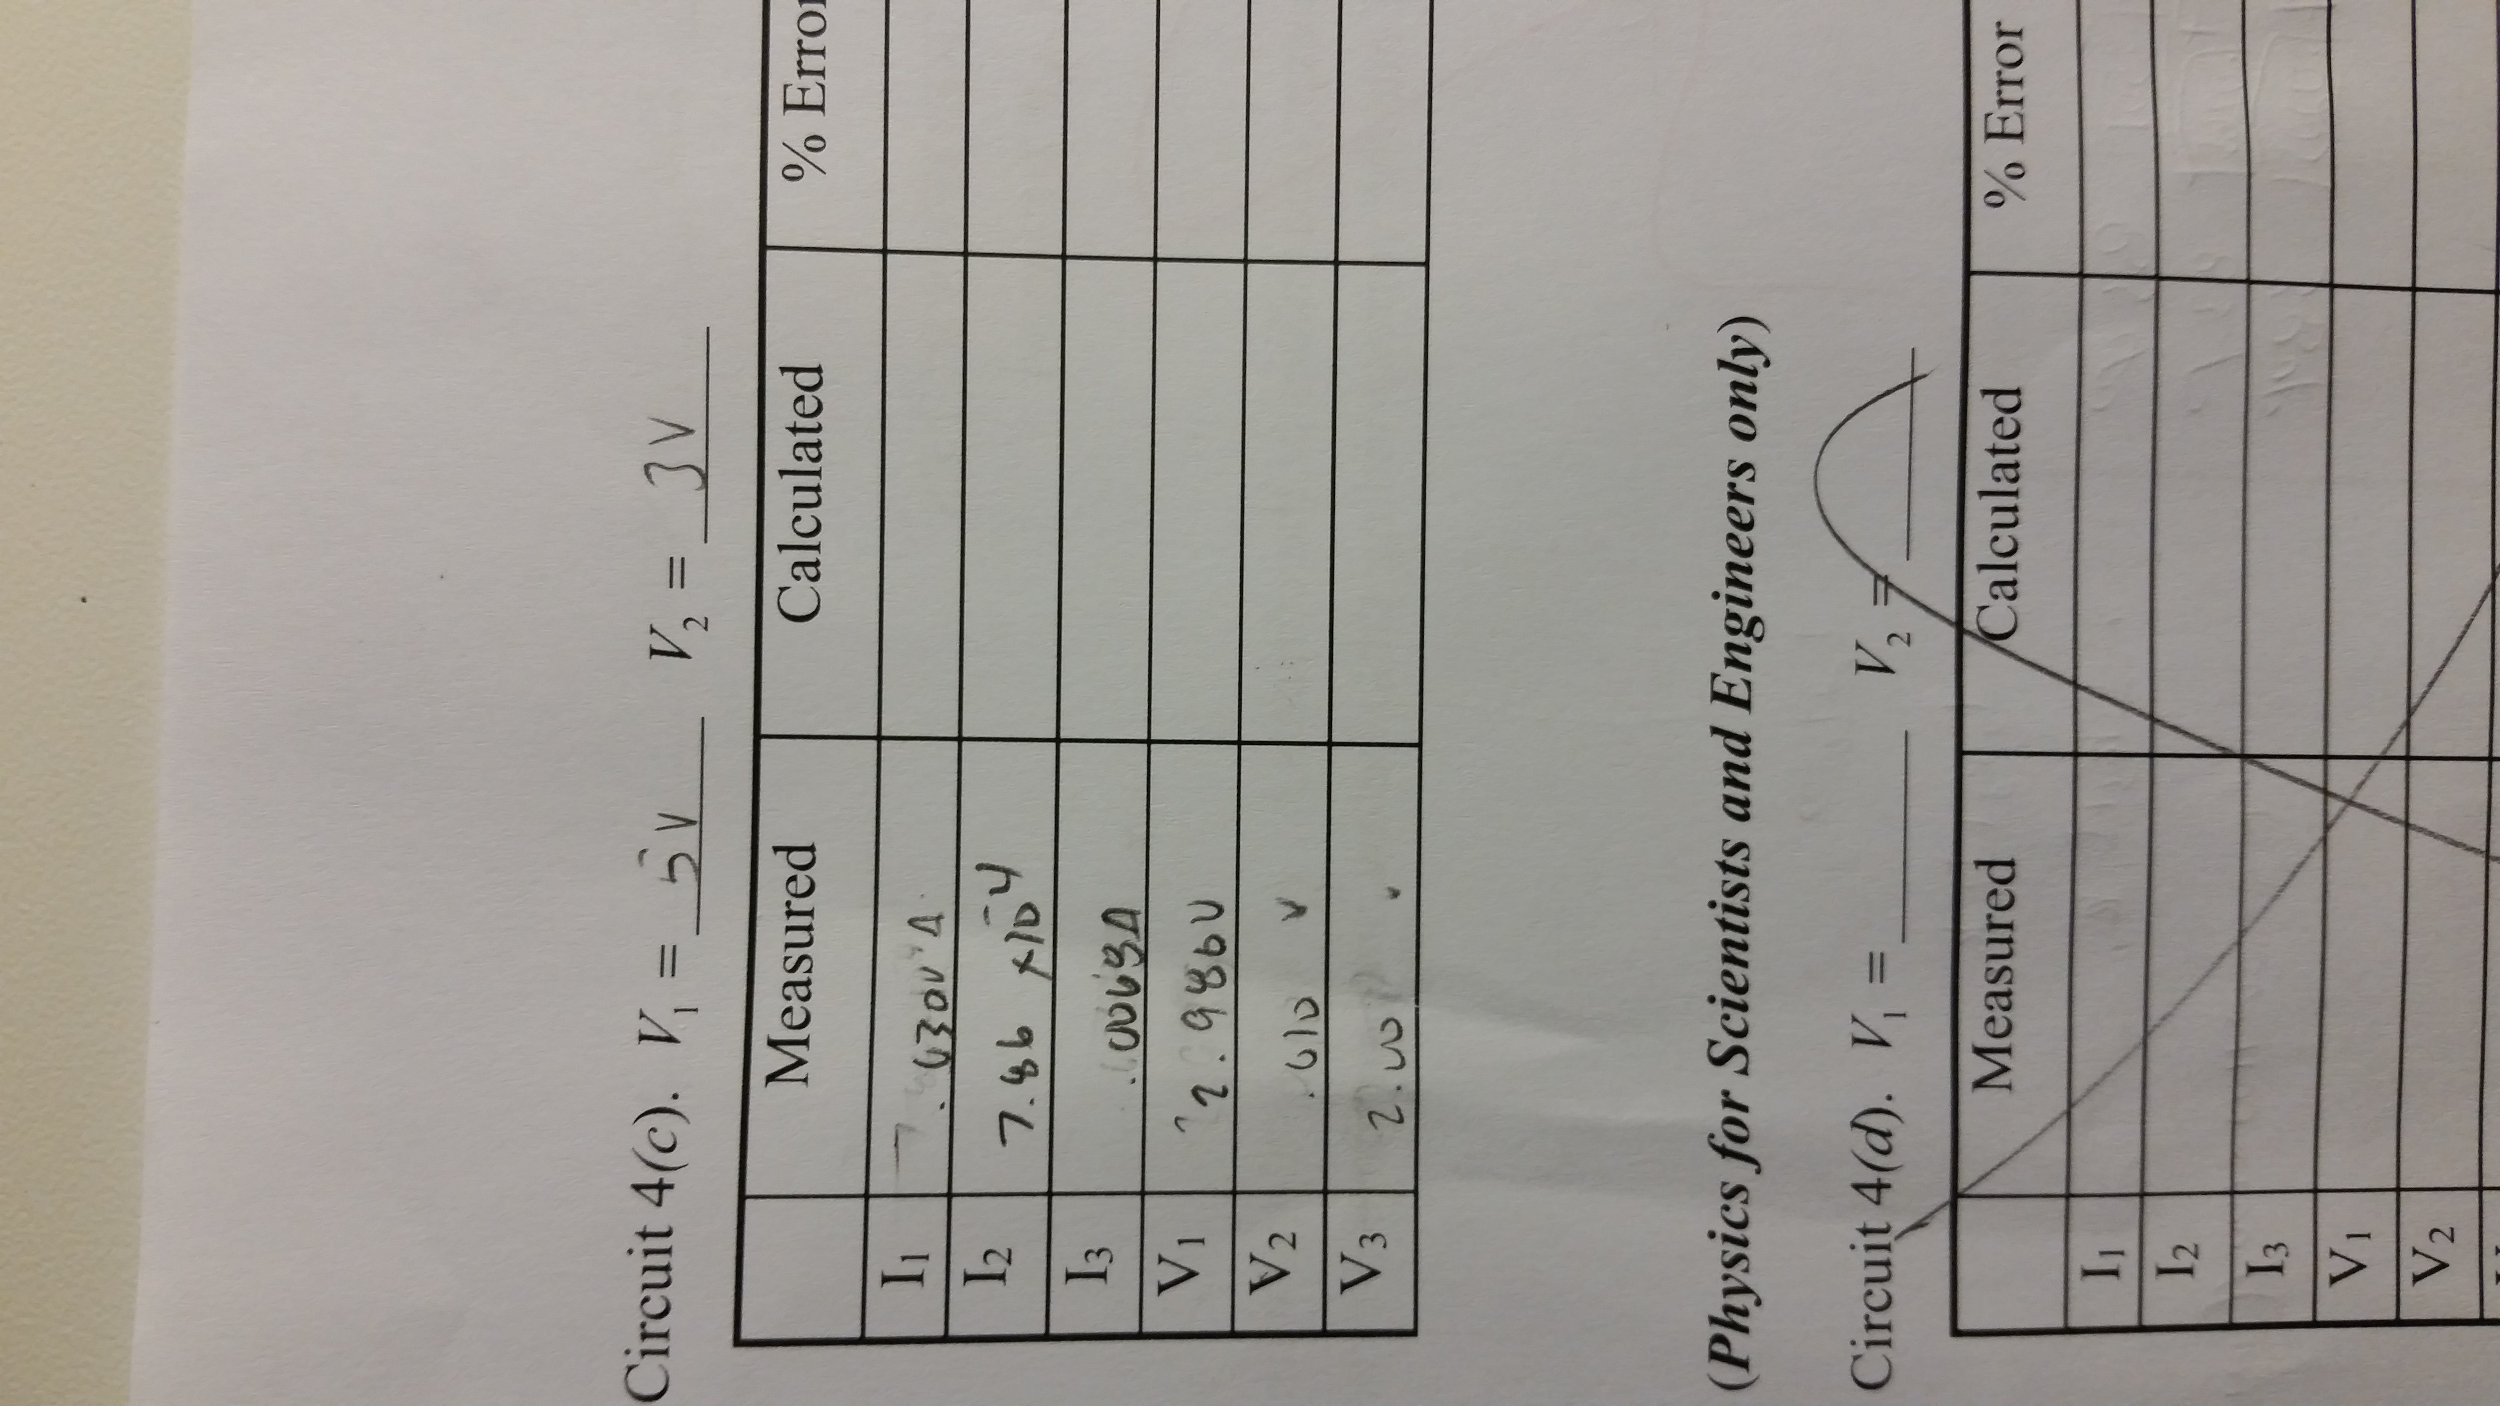 Circuit 4(c). V1 = 5V V2 = 3V
Measured Calculated % Error
I1
I2 7.86 x10-4
I3 .0063A
V1 2.986V
V2 .610 V
V3 2.00
(Physics for Scientists and Engineers only)
Circuit 4(d). V1 = ____ V2 = ____
Measured Calculated % Error
I1
I2
I3
V1
V2